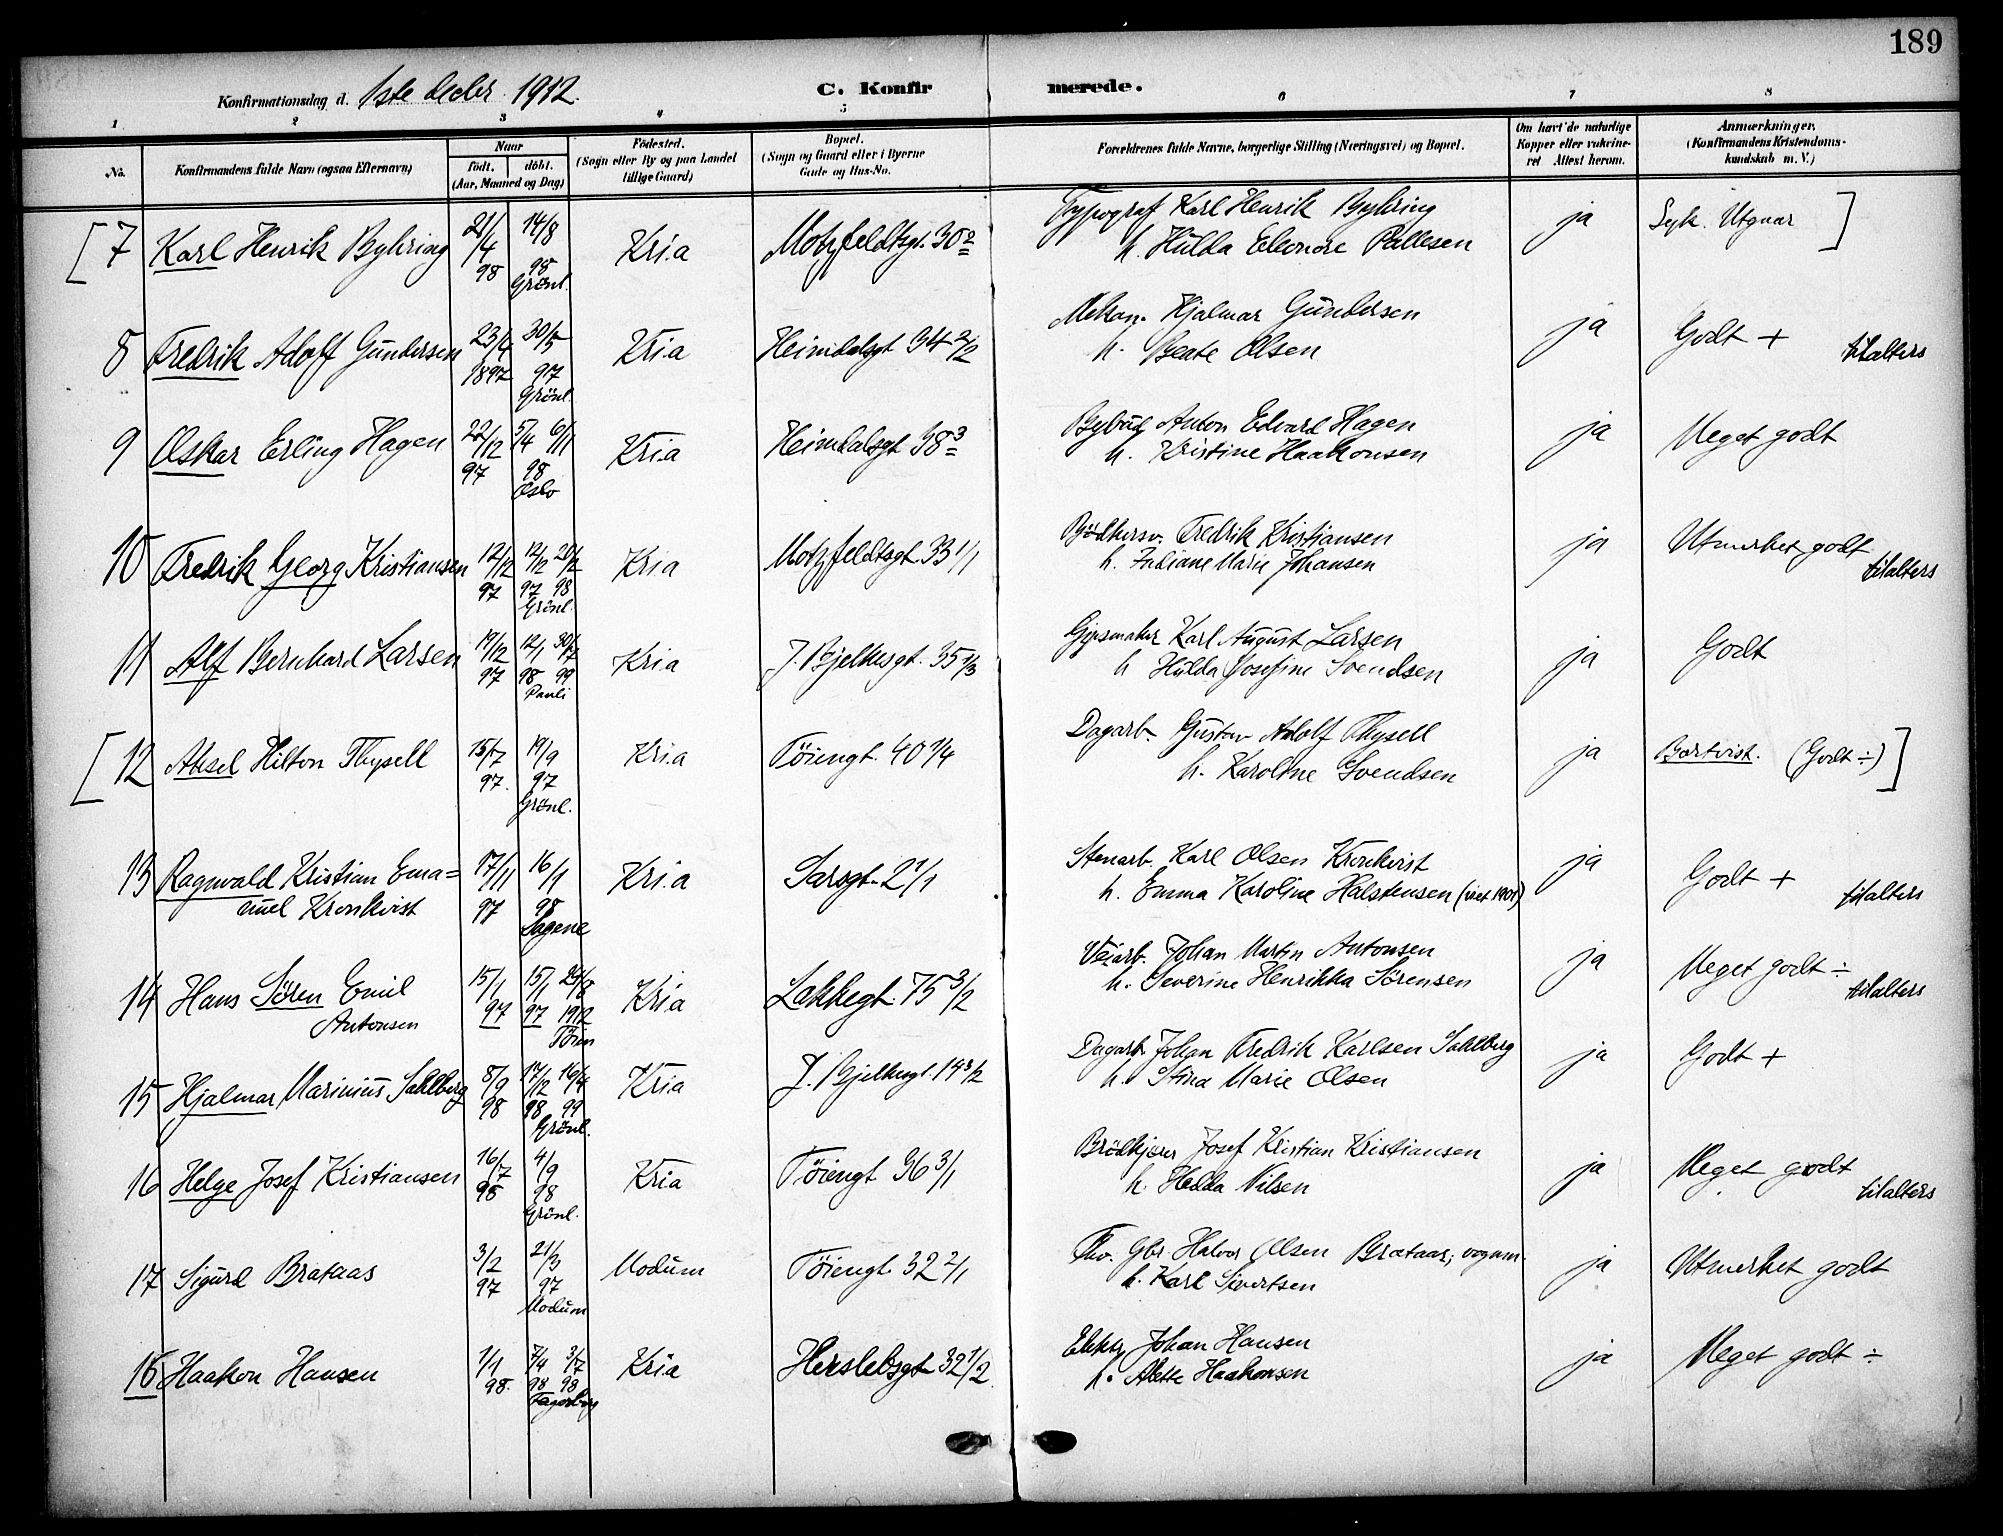 189
Konfirmationsdag d. 1ste decbr. 1912.
C. Konfirmerede.
1 2 3 4 5 6 7 8
No.
Konfirmandens fulde Navn (ogsaa Efternavn)
Naar
født. døbt.
(Aar, Maaned og Dag)
Fødested.
(Sogn eller By og paa Landet
tillige Gaard)
Bopæl.
(Sogn og Gaard eller i Byerne
Gade og Hus-No.
Forældrenes fulde Navne, borgerlige Stilling (Næringsvei) og Bopæl.
Om havt de naturlige
Kopper eller vakcine-
ret Attest herom.
Anmærkninger.
(Konfirmandens Kristendoms-
kundskab m. V.)
[7 Karl Henrik Byhring 21/4 98 14/8 98 Grönl. Kria Motzfeldtsgt. 30 2 Typograf Karl Henrik Byhring ja Syk. Utgaar ]
h. Hulda Eleonore Pallesen
8 Fredrik Adolf Gundersen 23/4 1897 30/5 97 Grönl. Kria Heimdalsgt 34 2/2 Mekan. Hjalmar Gundersen ja Godt + tilalters
h. Beate Olsen
9 Oskar Erling Hagen 22/12 97 5/4 6/11 98 Oslo Kria Heimdalsgt 38 3 Bybud Anton Edvard Hagen ja Meget godt
h. Kristine Haakonsen
10 Fredrik Georg Kristiansen 12/12 97 12/12 97 20/2 98 Grönl. Kria Motzfeldtsgt 33 1/1 Bödkersv. Fredrik Kristiansen ja Utmerket godt tilalters
h. Juliane Marie Johansen
11 Alf Bernhard Larsen 19/12 97 12/1 98 30/7 99 Pauli Kria J. Bjelkesgt. 35 1/3 Gjpsmaker Karl August Larsen ja Godt
h Hulda Josefine Svendsen
[12 Aksel Hilton Thysell 15/7 97. 19/9 97 Grönl. Kria Töiengt. 40 1/4 Dagarb. Gustav Adolf Thysell ja Bortvist. (Godt ÷) ]
h. Karoline Svendsen
13 Ragnvald Kristian Ema=
nuel Kronkvist 17/11 97 16/1 98 Sagene Kria Sarsgt. 2 1/1 Stenarb. Karl Olsen Kronkvist ja Godt + tilalters
h. Emma Karoline Halstensen
14 Hans Sören Emil
Antonsen 15/1 97 15/1 97 24/8 1912 Töien Kria Lakkegt. 75 3/2 Veiarb. Johan Martin Antonsen ja Meget godt ÷ tilalters
h. Severine Henrikka Sörensen
15 Hjalmar Marinius Sahlberg 8/9 98 17/12 98 16/4 99 Grönl. Kria J. Bjelkesgt. 19 3/2 Dagarb. Johan Fredrik Karlsen Sahlberg ja Godt +
h. Stina Marie Olsen
16 Helge Josef Kristiansen 16/7 98 4/9 98 Grönl. Kria Töiengt 36 3/1 Brödkjörer Josef Kristian Kristiansen ja Meget godt tilalters
h. Hedda Nilsen
17 Sigurd Brataas 3/2 97 21/3 97 Modum Modum Töiengt. 32 2/1 Fhv. Gbr. Halvor Olsen Brataas, vognm. ja Utmerket godt
h. Karl Sivertsen
18 Haakon Hansen 1/1 98. 7/4 98 3/7 98 Fagerborg Kria Herslebsgt 32 1/2. Elektr. Johan Hansen ja Meget godt ÷
h. Alette Haakonsen